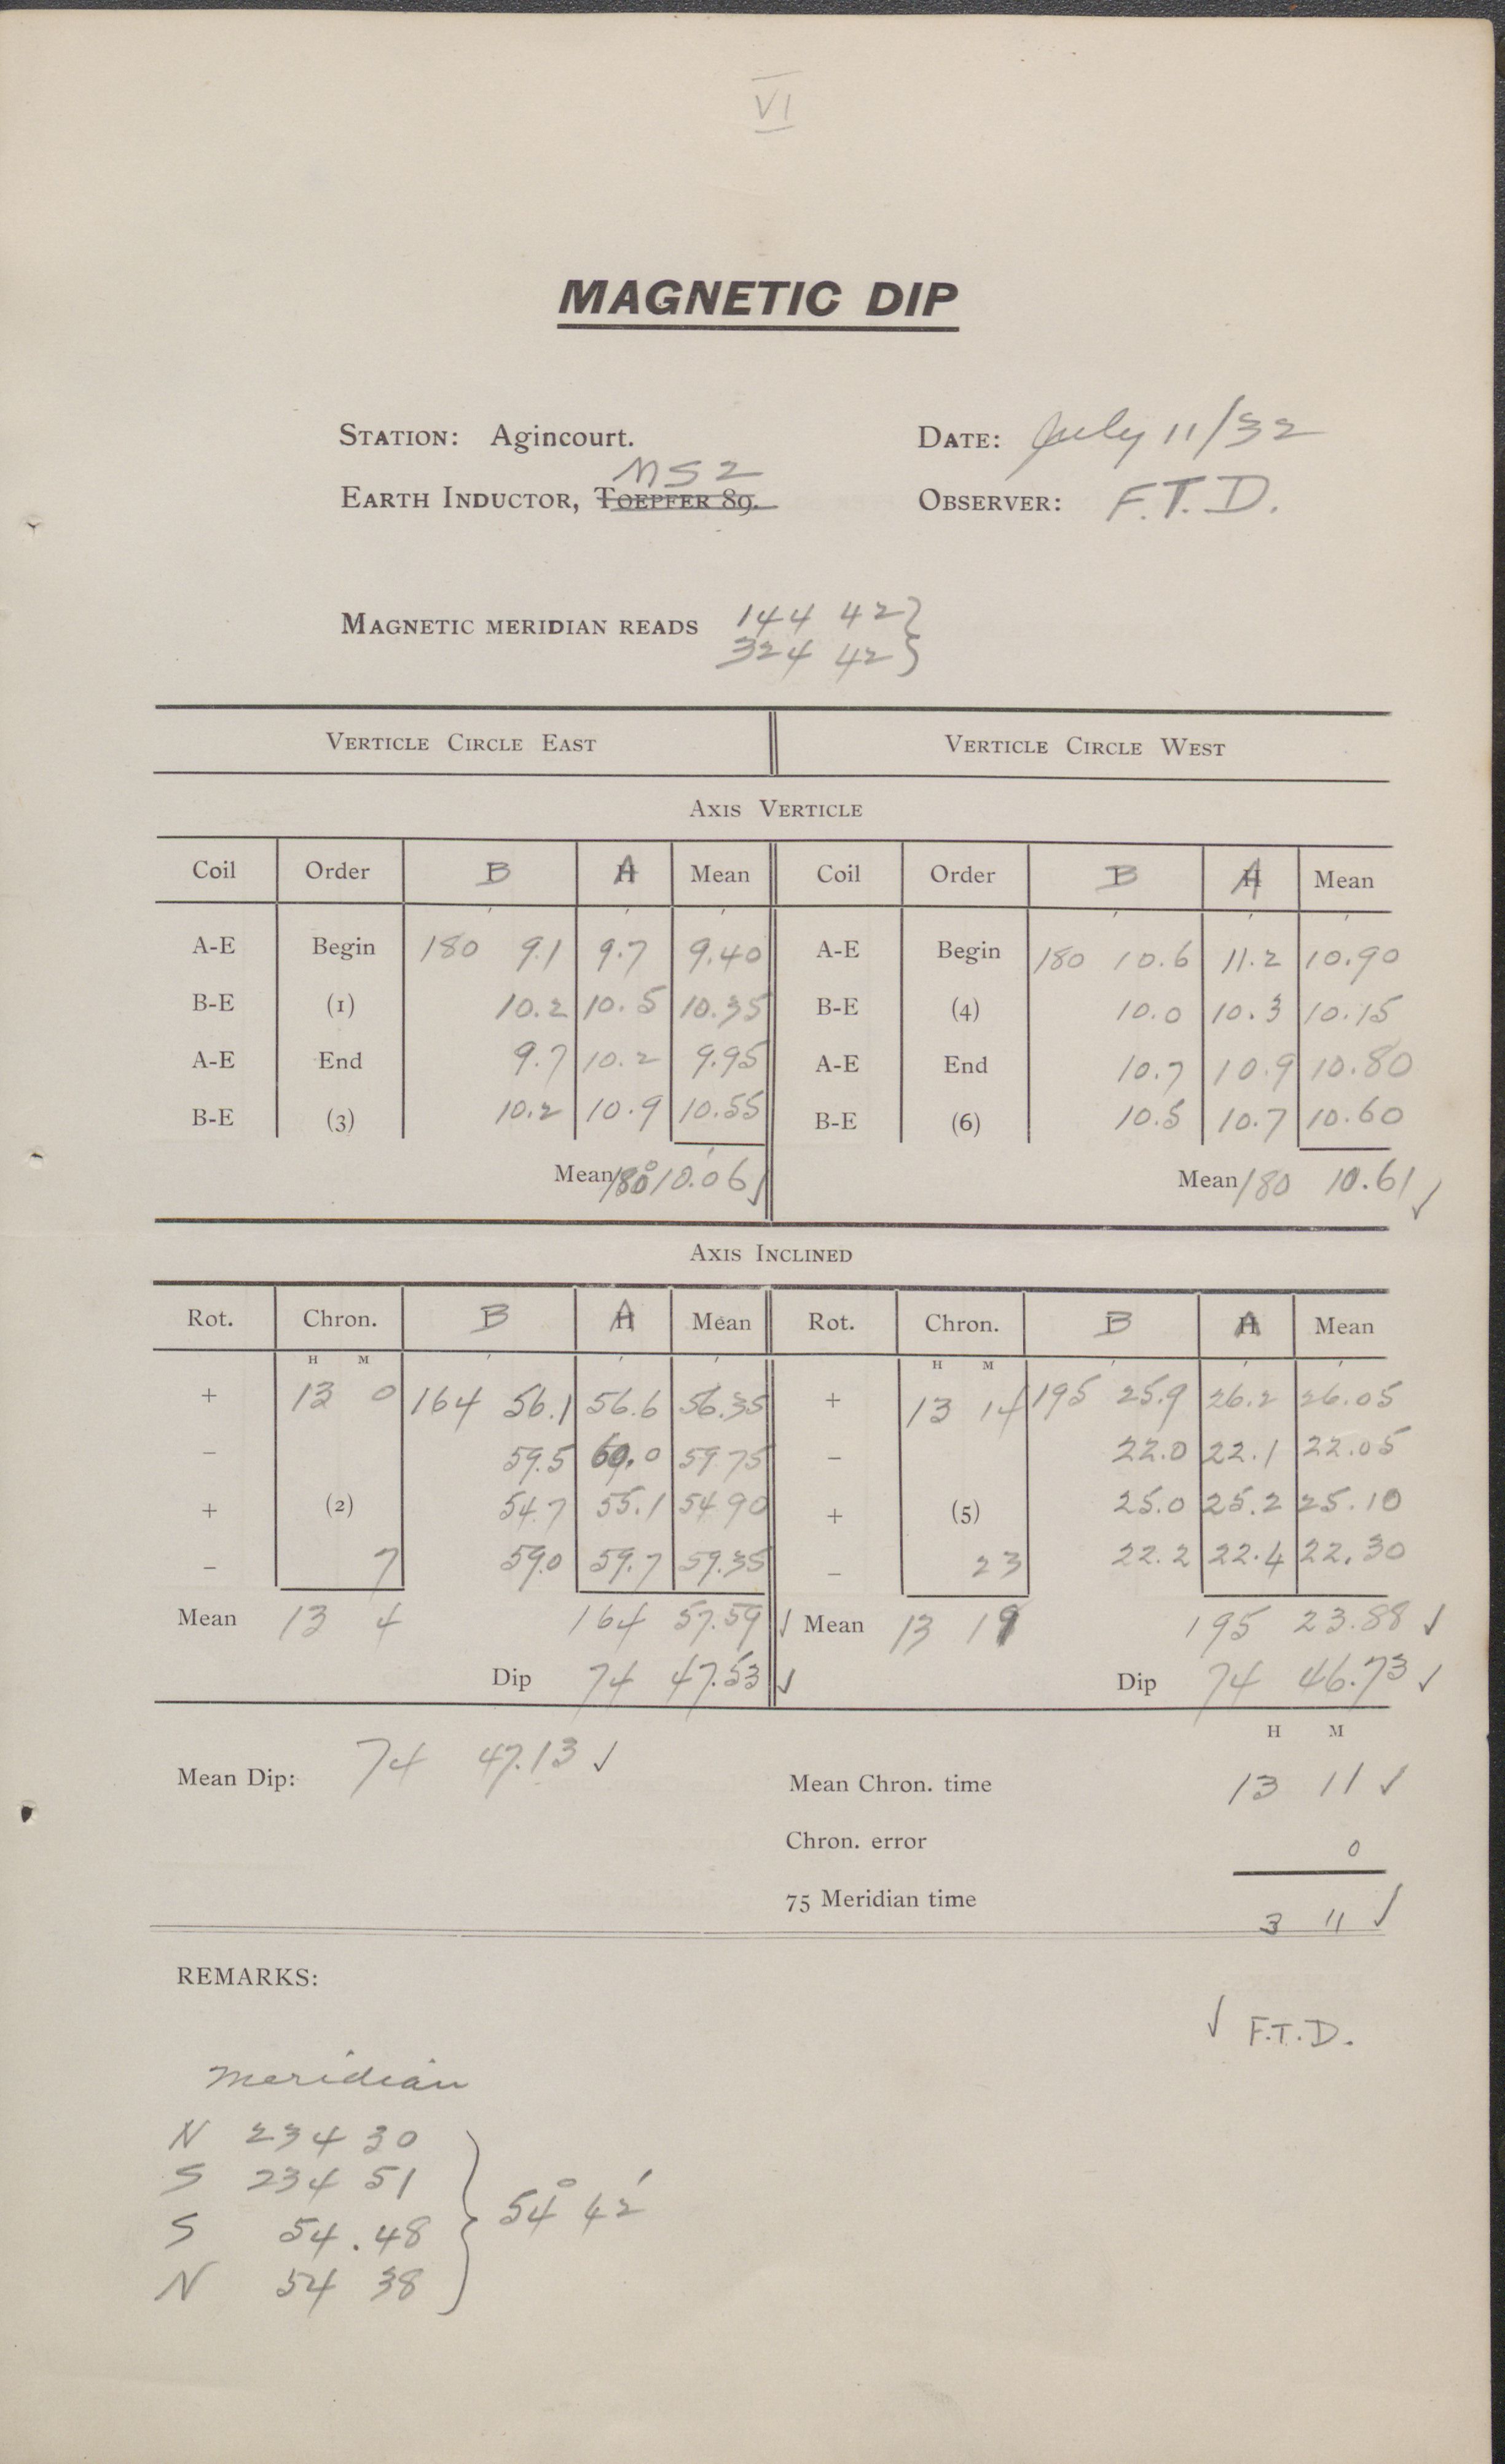 VI
MAGNETIC DIP
STATION: Agincourt. DATE: July 11/32
MS 2
EARTH INDUCTOR, TOEPFER 89. OBSERVER: F.T.D.
MAGNETIC MERIDIAN READS 144 42 }
324 42 }
VERTICLE CIRCLE EAST VERTICLE CIRCLE WEST
AXIS VERTICLE
Coil Order B A Mean Coil Order B A Mean
A-E Begin 180 9.1 9.7 9.40 A-E Begin 180 10.6 11.2 10.90
B-E (1) 10.2 10.5 10.35 B-E (4) 10.0 10.3 10.15
A-E End 9.7 10.2 9.95 A-E End 10.7 10.9 10.80
B-E (3) 10.2 10.9 10.55 B-E (6) 10.5 10.7 10.60
Mean 180° 10.06 ✓ Mean 180 10.61 ✓
AXIS INCLINED
Rot. Chron. B A Mean Rot. Chron. B A Mean
H M H M
+ 13 0 164 56.1 56.6 56.35 + 13 14 195 25.9 26.2 26.05
− 59.5 60.0 59.75 − 22.0 22.1 22.05
+ (2) 54.7 55.1 54.90 + (5) 25.0 25.2 25.10
− 7 59.0 59.7 59.35 − 23 22.2 22.4 22.30
Mean 13 4 164 57.59 ✓ Mean 13 19 195 23.88 ✓
Dip 74 47.53 ✓ Dip 74 46.73 ✓
H M
Mean Dip: 74 47.13 ✓ Mean Chron. time 13 11 ✓
Chron. error 0
75 Meridian time 3 11 ✓
REMARKS:
✓ F.T.D.
Meridian
N 234 30
S 234 51
S 54.48 } 54° 42'
N 54 38